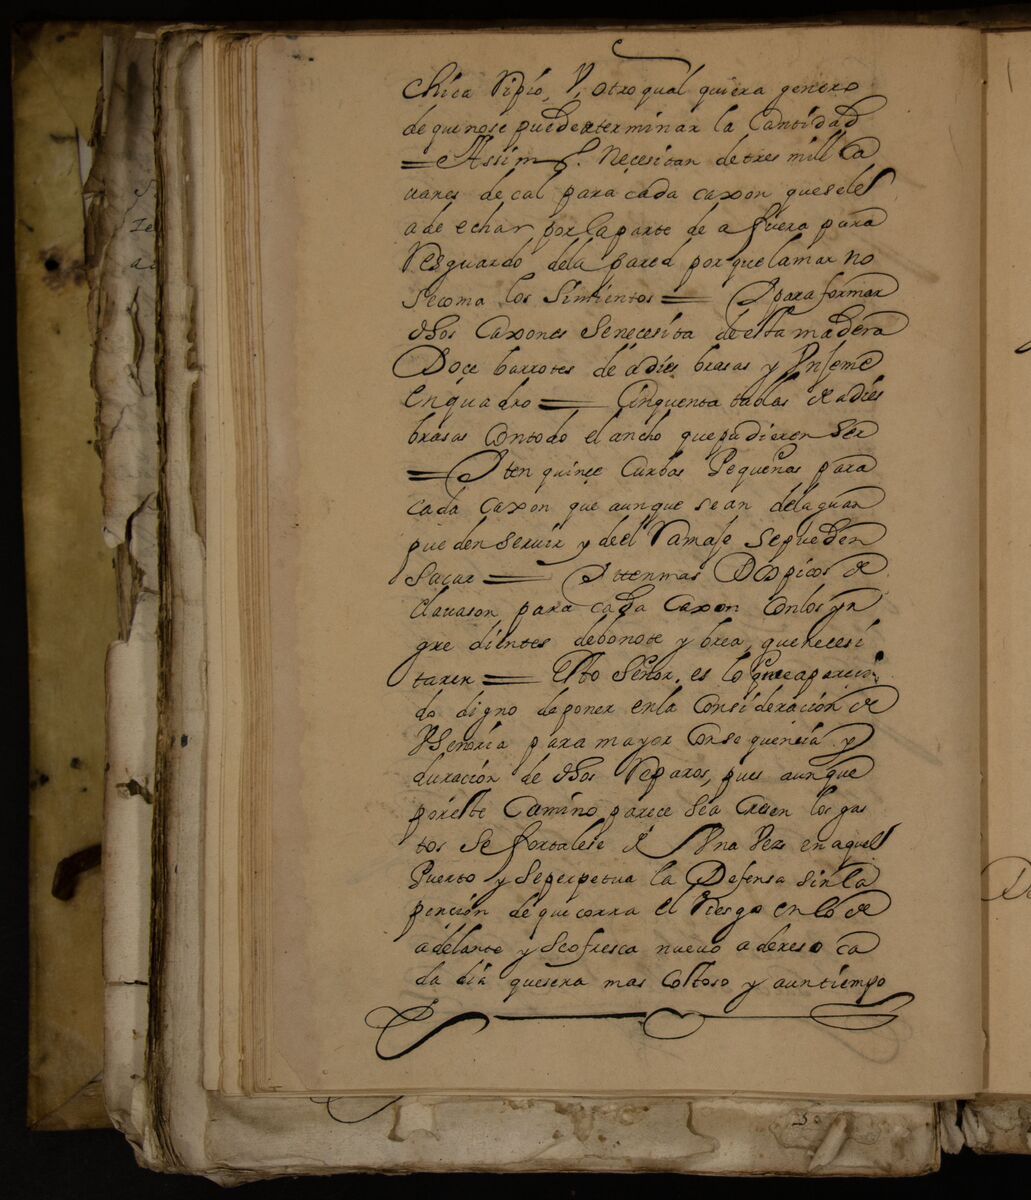 chica Ripio, Y, otro qual quiera genero
de que nose puede terminar la Cantidad
= Assim J. Necesitan de tres mill Ca
uanes de cal para cada caxon que sele
a de echar por la parte de afuera para
Resguardo dela pared porque la mar no
se coma los Simientos = Y para formar
dhos Caxones Senecesita de esta madera
Doce barrotes de adies brasas y Un seme
En quadro = Cinquenta tablas de adies
brasas Contodo el ancho que pudieren ser
= Iten quince Curbas Pequeñas para
cada Caxon que aunque sean de la guan
pueden seruir y de el Ramaje se pueden
Sacar = Itten mas Dos picos de
clauason para cada Caxon Con los yn
gre dientes de bonote y brea, que necesi
taren = Esto Señor, es lo que e aparecí
do digno de poner en la Consideración de
VSeñoria para mayor Consequencia y
duración de dhos Reparos, pues aunque
por este Camino parece sea Crecen los gas
tos Se fortalese de Una Vez en aquel
Puerto y Se perpetua la Defensa sin la
pención de que corra el Riesgo en lo de
adelante y Se ofresca nueuo adereso ca
da dia que sera mas Costoso y a un tiempo